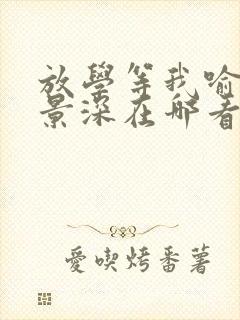 放學等我喻
景深在哪看
愛喫烤番薯